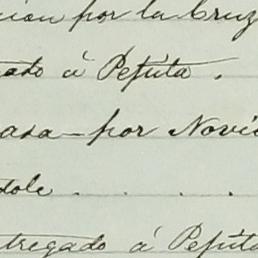 cion por la Cruz
gado á Pepita.
asa - por Novie
dole . . . .
ntregado á Pepita